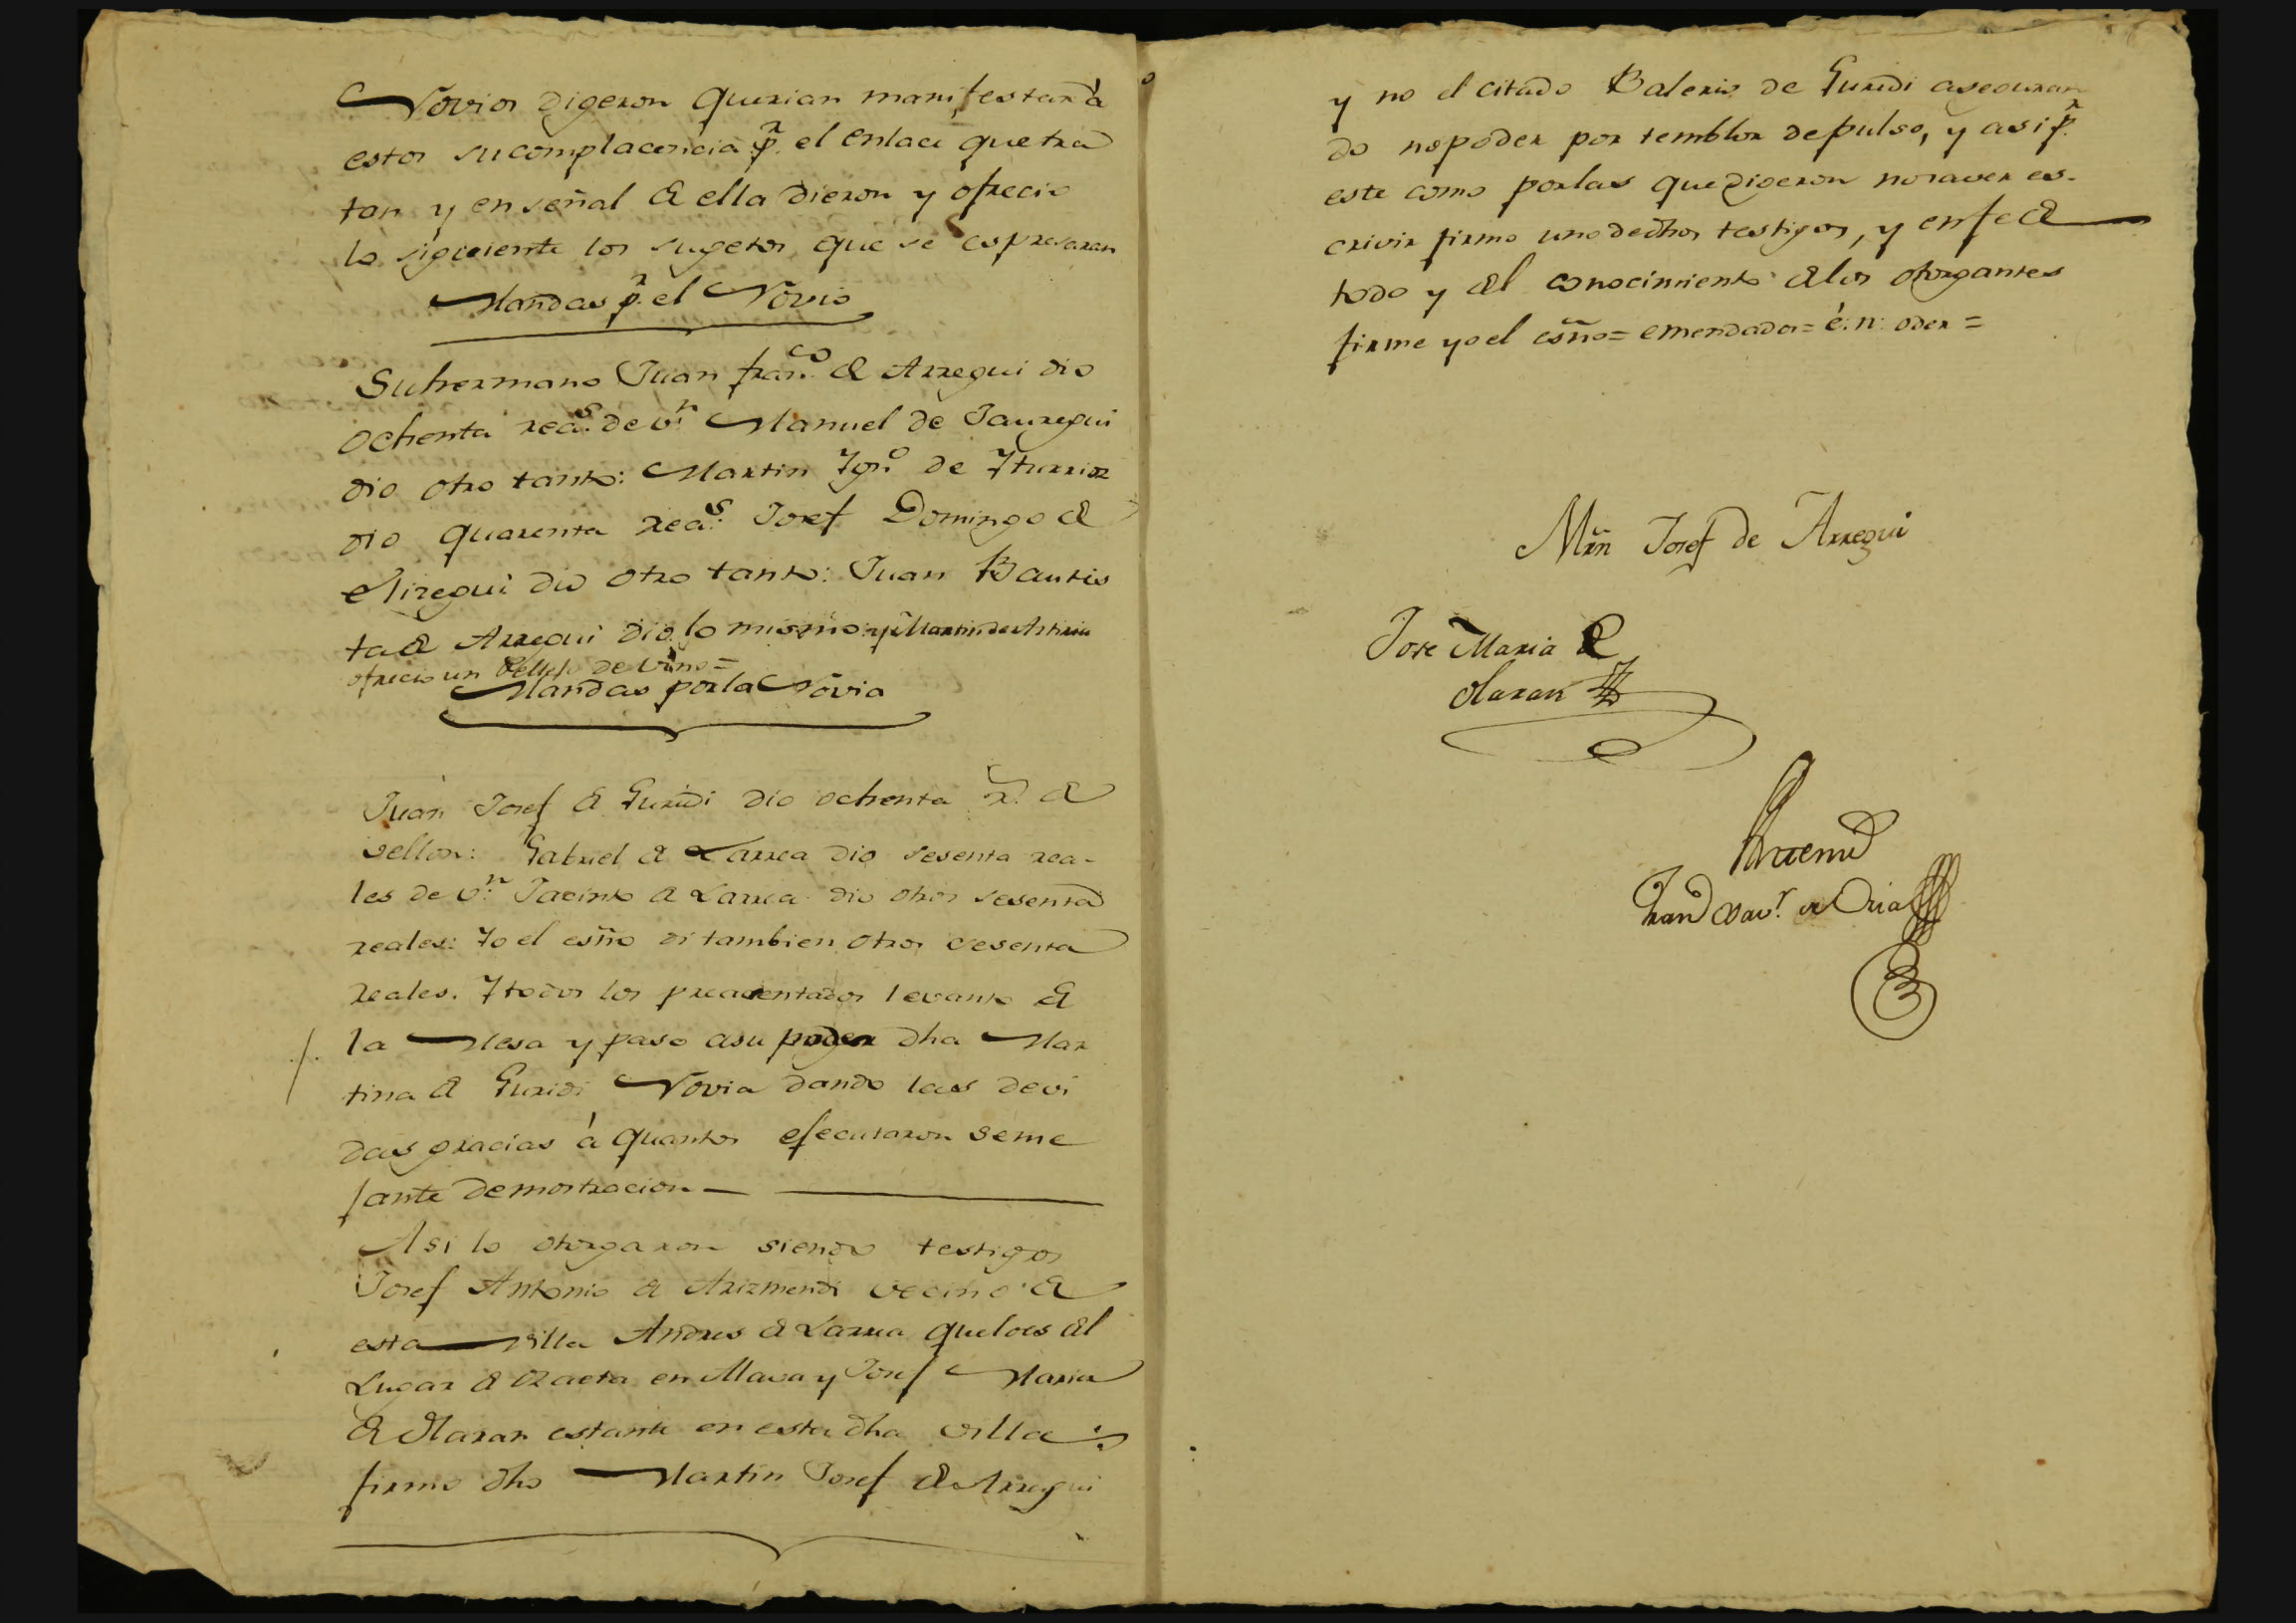 Novios digeron querian manifestar à
estos su complacencia pr. el enlace que tra
tan y en señal de ella dieron y ofrecio
lo siguiente los sugetos que se espresaran
Mandas pr. el Novio
Su hermano Juan franco. de Arregui dio
ochenta reas. de vn. Manuel de Jauregui
dio otro tanto: Martin Igno. de Iturrioz
dio quarenta reas: Josef Domingo de
Aregui dio otro tanto: Juan Bautis
ta de Arregui dio lo mismo: y Martin de
ofrecio un Pellejo de vino=
Mandas por la Novia
Juan Josef de Guridi dio ochenta rs. de
vellon: Gabriel de Larrea dio sesenta rea-
les de vn. Jacinto de Larrea dio otros sesenta
reales: Yo el esño di tambien otros sesenta
reales. Y todos los levanto de
la Mesa y paso a su poder dha Mar
tina de Guridi Novia dando las devi
das gracias à quantos efecutaron seme
jante demostracion
Asi lo otorgaron siendo testigos
Josef Antonio de Arizmendi vecino de
esta villa Andres de Larrea que lo es del
Lugar de Ozaeta en Alava y Josef Maria
de Olaran estante en esta dha villa:
firmo dho Martin Josef de Arregui
y no el citado Balerio de Guridi aseguran
do no poder por temblor de pulso, y asi pr.
este como por las que digeron no saver es-
crivir firmo uno de dhos testigos, y en fe de
todo y del conocimiento de los otorgantes
firme yo el esño= emendado= é: n: oder=
Mrn Josef de Arregui
Jose Maria de
Olaran
Antemi
Xavr. de Oria